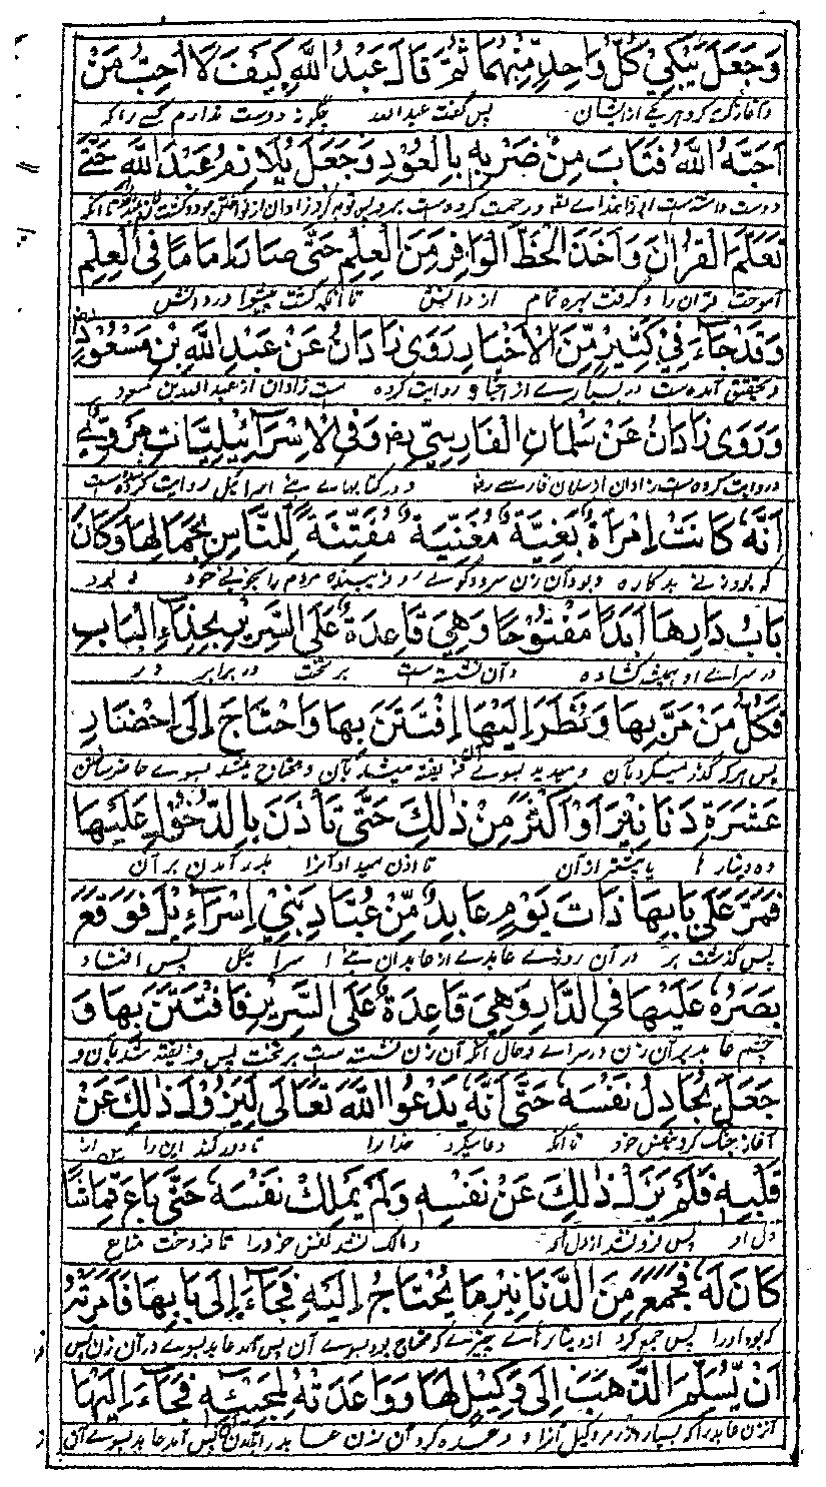 وَجَعَلَ يَبْكِي كُلُّ وَاحِدٍ مِّنْهُمَا ثُمَّ قَالَ عَبْدُ اللَّهِ كَيْفَ لَا أُحِبُّ مَنْ
و آغاز گریه کرد هر یکے از ایشان پس گفت عبد الله چگونه دوست ندارم کسے را که
اَحَبَّهُ اللَّهُ فَتَابَ مِنْ ضَرْبِهِ بِالْعُودِ وَجَعَلَ يُلَازِمُ عَبْدَ اللَّهِ حَتَّى
دوست داشته است او را خدائے
تَعَلَّمَ الْقُرْآنَ وَأَخَذَ الْحَظَّ الْوَافِرَ مِنَ الْعِلْمِ حَتَّى صَارَ إِمَامًا فِي الْعِلْمِ
آموخت قرآن را و گرفت بهره تمام از دانش تا آنکه گشت پیشوا در دانش
وَقَدْ جَاءَ فِي كَثِيرٍ مِّنَ الْأَخْبَارِ رَوَى زَاذَانُ عَنْ عَبْدِ اللَّهِ بْنِ مَسْعُودٍ
و تحقیق آمده است در بسیارے از اخبار روایت کرده است زاذان از عبد الله بن مسعود
وَرَوَى زَاذَانُ عَنْ سَلْمَانَ الْفَارِسِيِّ رض وَفِي الْإِسْرَائِيلِيَّاتِ مَرْوِيٌّ
و روایت کرده است زاذان از سلمان فارسے رض و در کتابهائے بنے اسرائیل روایت کرده شده است
أَنَّهُ كَانَتْ اِمْرَأَةٌ بَغِيَّةٌ مُغَنِّيَةٌ مُفَتِّنَةٌ لِّلنَّاسِ بِجَمَالِهَا وَكَانَ
که بود زنے بدکاره و بود آن زن سرود گوے و فریبنده مردم را بخوبئے خود و بود
بَابُ دَارِهَا أَبَدًا مَفْتُوحًا وَهِيَ قَاعِدَةٌ عَلَى السَّرِيرِ بِحِذَاءِ الْبَابِ
در سرائے او همیشه کشاده و آن نشسته است بر تخت در برابر در
فَكُلُّ مَنْ مَرَّ بِهَا وَنَظَرَ إِلَيْهَا اِفْتَتَنَ بِهَا وَاحْتَاجَ إِلَى إِحْضَارِ
پس هر که گذر میکرد بآن و میدید بسوے آن فریفته میشد بآن و محتاج میشد بسوے حاضر ساختن
عَشَرَةِ دَنَانِيرَ أَوْ أَكْثَرَ مِنْ ذَلِكَ حَتَّى تَأْذَنَ بِالدُّخُولِ عَلَيْهَا
ده دینار یا بیشتر از آن تا اذن میداد آنرا بدر آمدن بر آن
فَمَرَّ عَلَى بَابِهَا ذَاتَ يَوْمٍ عَابِدٌ مِّنْ عُبَّادِ بَنِي إِسْرَاءِيلَ فَوَقَعَ
پس گذشت بر در آن روزے عابدے از عابدان بنے اسرائیل پس افتاد
بَصَرُهُ عَلَيْهَا فِي الدَّارِ وَهِيَ قَاعِدَةٌ عَلَى السَّرِيرِ فَافْتَتَنَ بِهَا وَ
چشم عابد بر آن زن در سرائے در حال آنکه آن زن نشسته است بر تخت پس فریفته شد بآن و
جَعَلَ يُجَادِلُ نَفْسَهُ حَتَّى أَنَّهُ يَدْعُو اللَّهَ تَعَالَى لِيَزُولَ ذَلِكَ عَنْ
آغاز جنگ کرد بنفس خود تا آنکه دعا میکرد خدا را تا دور کند این را از
قَلْبِهِ فَلَمْ يَزُلْ ذَلِكَ عَنْ نَفْسِهِ وَلَمْ يَمْلِكْ نَفْسَهُ حَتَّى بَاعَ قُمَاشًا
دل او پس دور نشد از دل او و مالک نشد نفس خود را تا فروخت متاع
كَانَ لَهُ فَجَمَعَ مِنَ الدَّنَانِيرِ مَا يَحْتَاجُ إِلَيْهِ فَجَاءَ إِلَى بَابِهَا فَأَمَرَتْهُ
که بود او را پس جمع کرد از دینارهائے چیزے که محتاج بود بسوے آن پس آمد عابد بسوے در آن زن پس
أَنْ يُّسَلِّمَ الذَّهَبَ إِلَى وَكِيلٍ لَهَا وَوَاعَدَتْهُ لِمَجِيئِهِ فَجَاءَ إِلَيْهَا